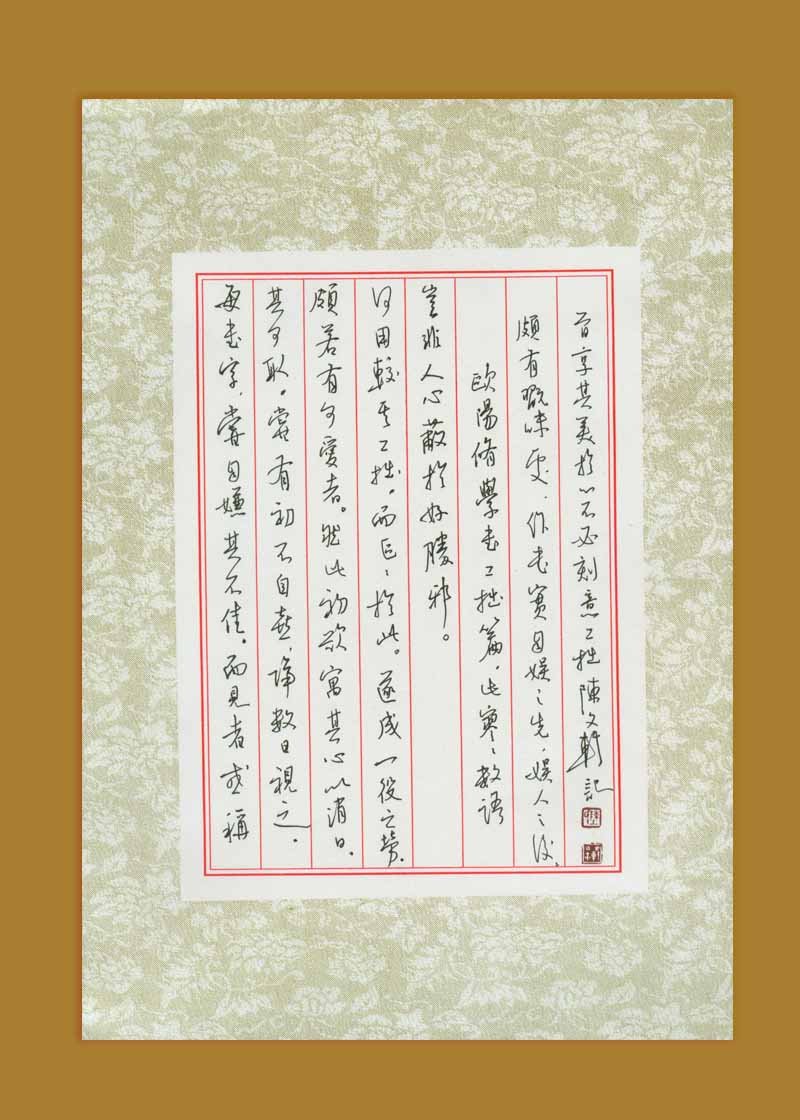 每書字，嘗自嫌其不佳。而見者或稱
其可取。嘗有初不自喜，隔數日視之。
頗若有可愛者。然此初欲寓其心以消日，
何用較其工拙。而區〻於此。遂成一役之勞，
豈非人心蔽於好勝邪。
歐陽脩學書工拙篇，此寥〻數語
頗有翫味處，作書實自娛之先，娛人之後，
享其美於心不必刻意工拙 陳文軒記